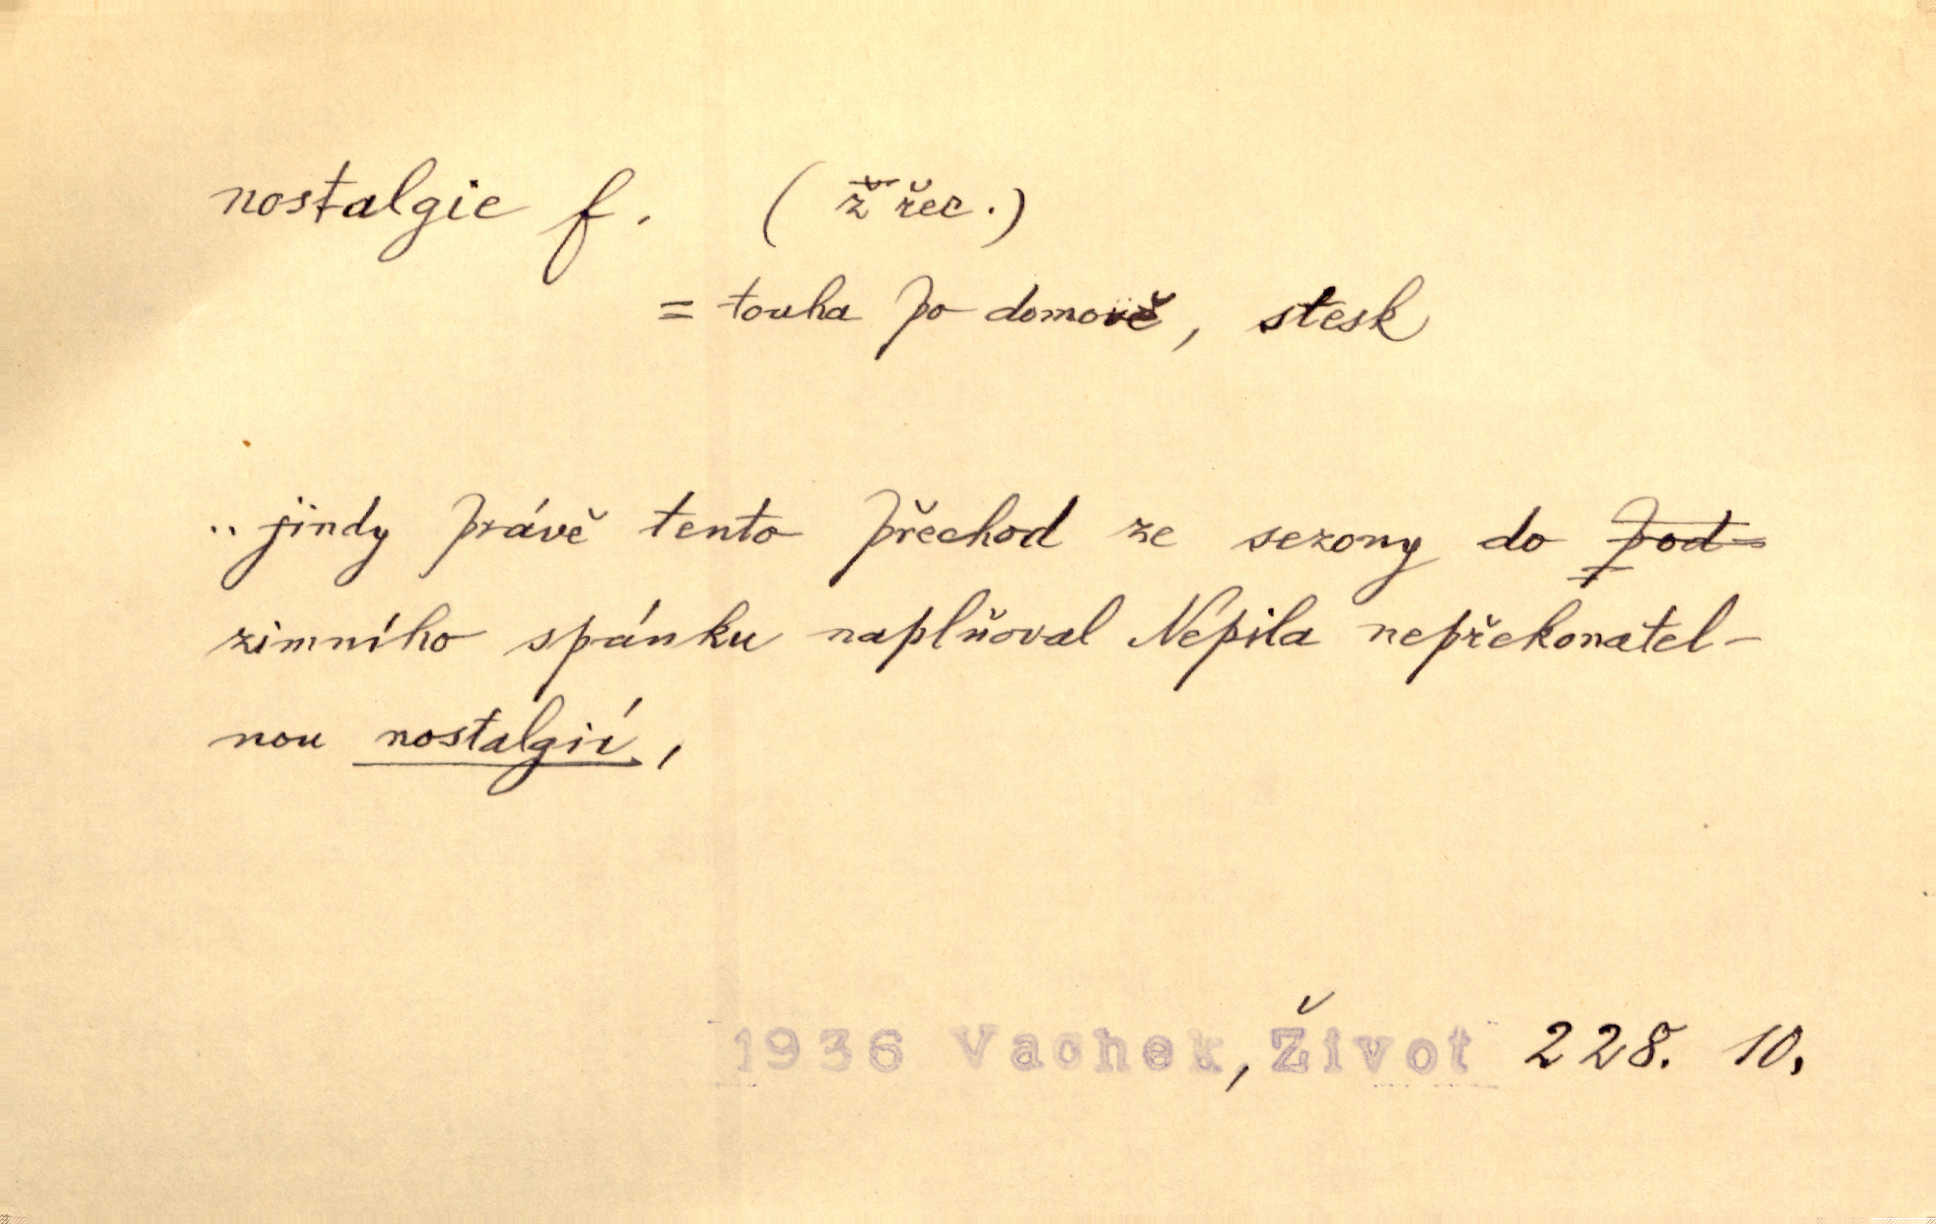 nostalgie f. (z řec.)
= touha po domově, stesk
.. jindy právě tento přechod ze sezony do pod-
zimního spánku naplňoval Népila nepřekonatel-
nou nostalgií,
1936 Vachek, Život 228. 10.